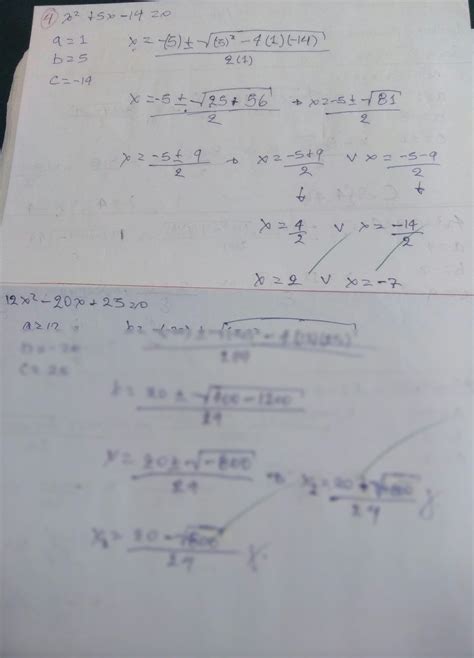 4) x² + 5x - 14 = 0
a = 1
b = 5
c = -14
x = -(5) ± √(5)² - 4(1)(-14) / 2(1)
x = -5 ± √25 + 56 / 2 → x = -5 ± √81 / 2
x = -5 ± 9 / 2 → x = -5+9 / 2 v x = -5-9 / 2
x = 4/2 v x = -14/2
x = 2 v x = -7
12x² - 20x + 25 = 0
a = 12
b = -20
c = 25
20 ± √400 - 1200 / 24
x = 20 ± √-800 / 24
x₂ = 20 + / 24
20 - / 24